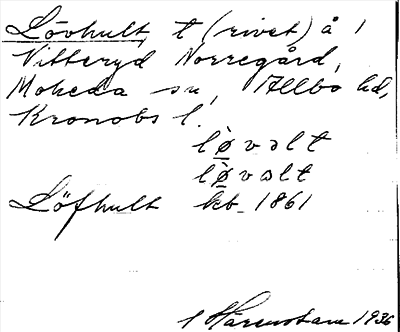 Lövhult, t (rivet) å 1
Vitteryd Norregård,
Moheda sn, Allbo hd,
Kronobs l.
lø̀vəlt
lø̀vəlt
Löfhult kb. 1861
1936